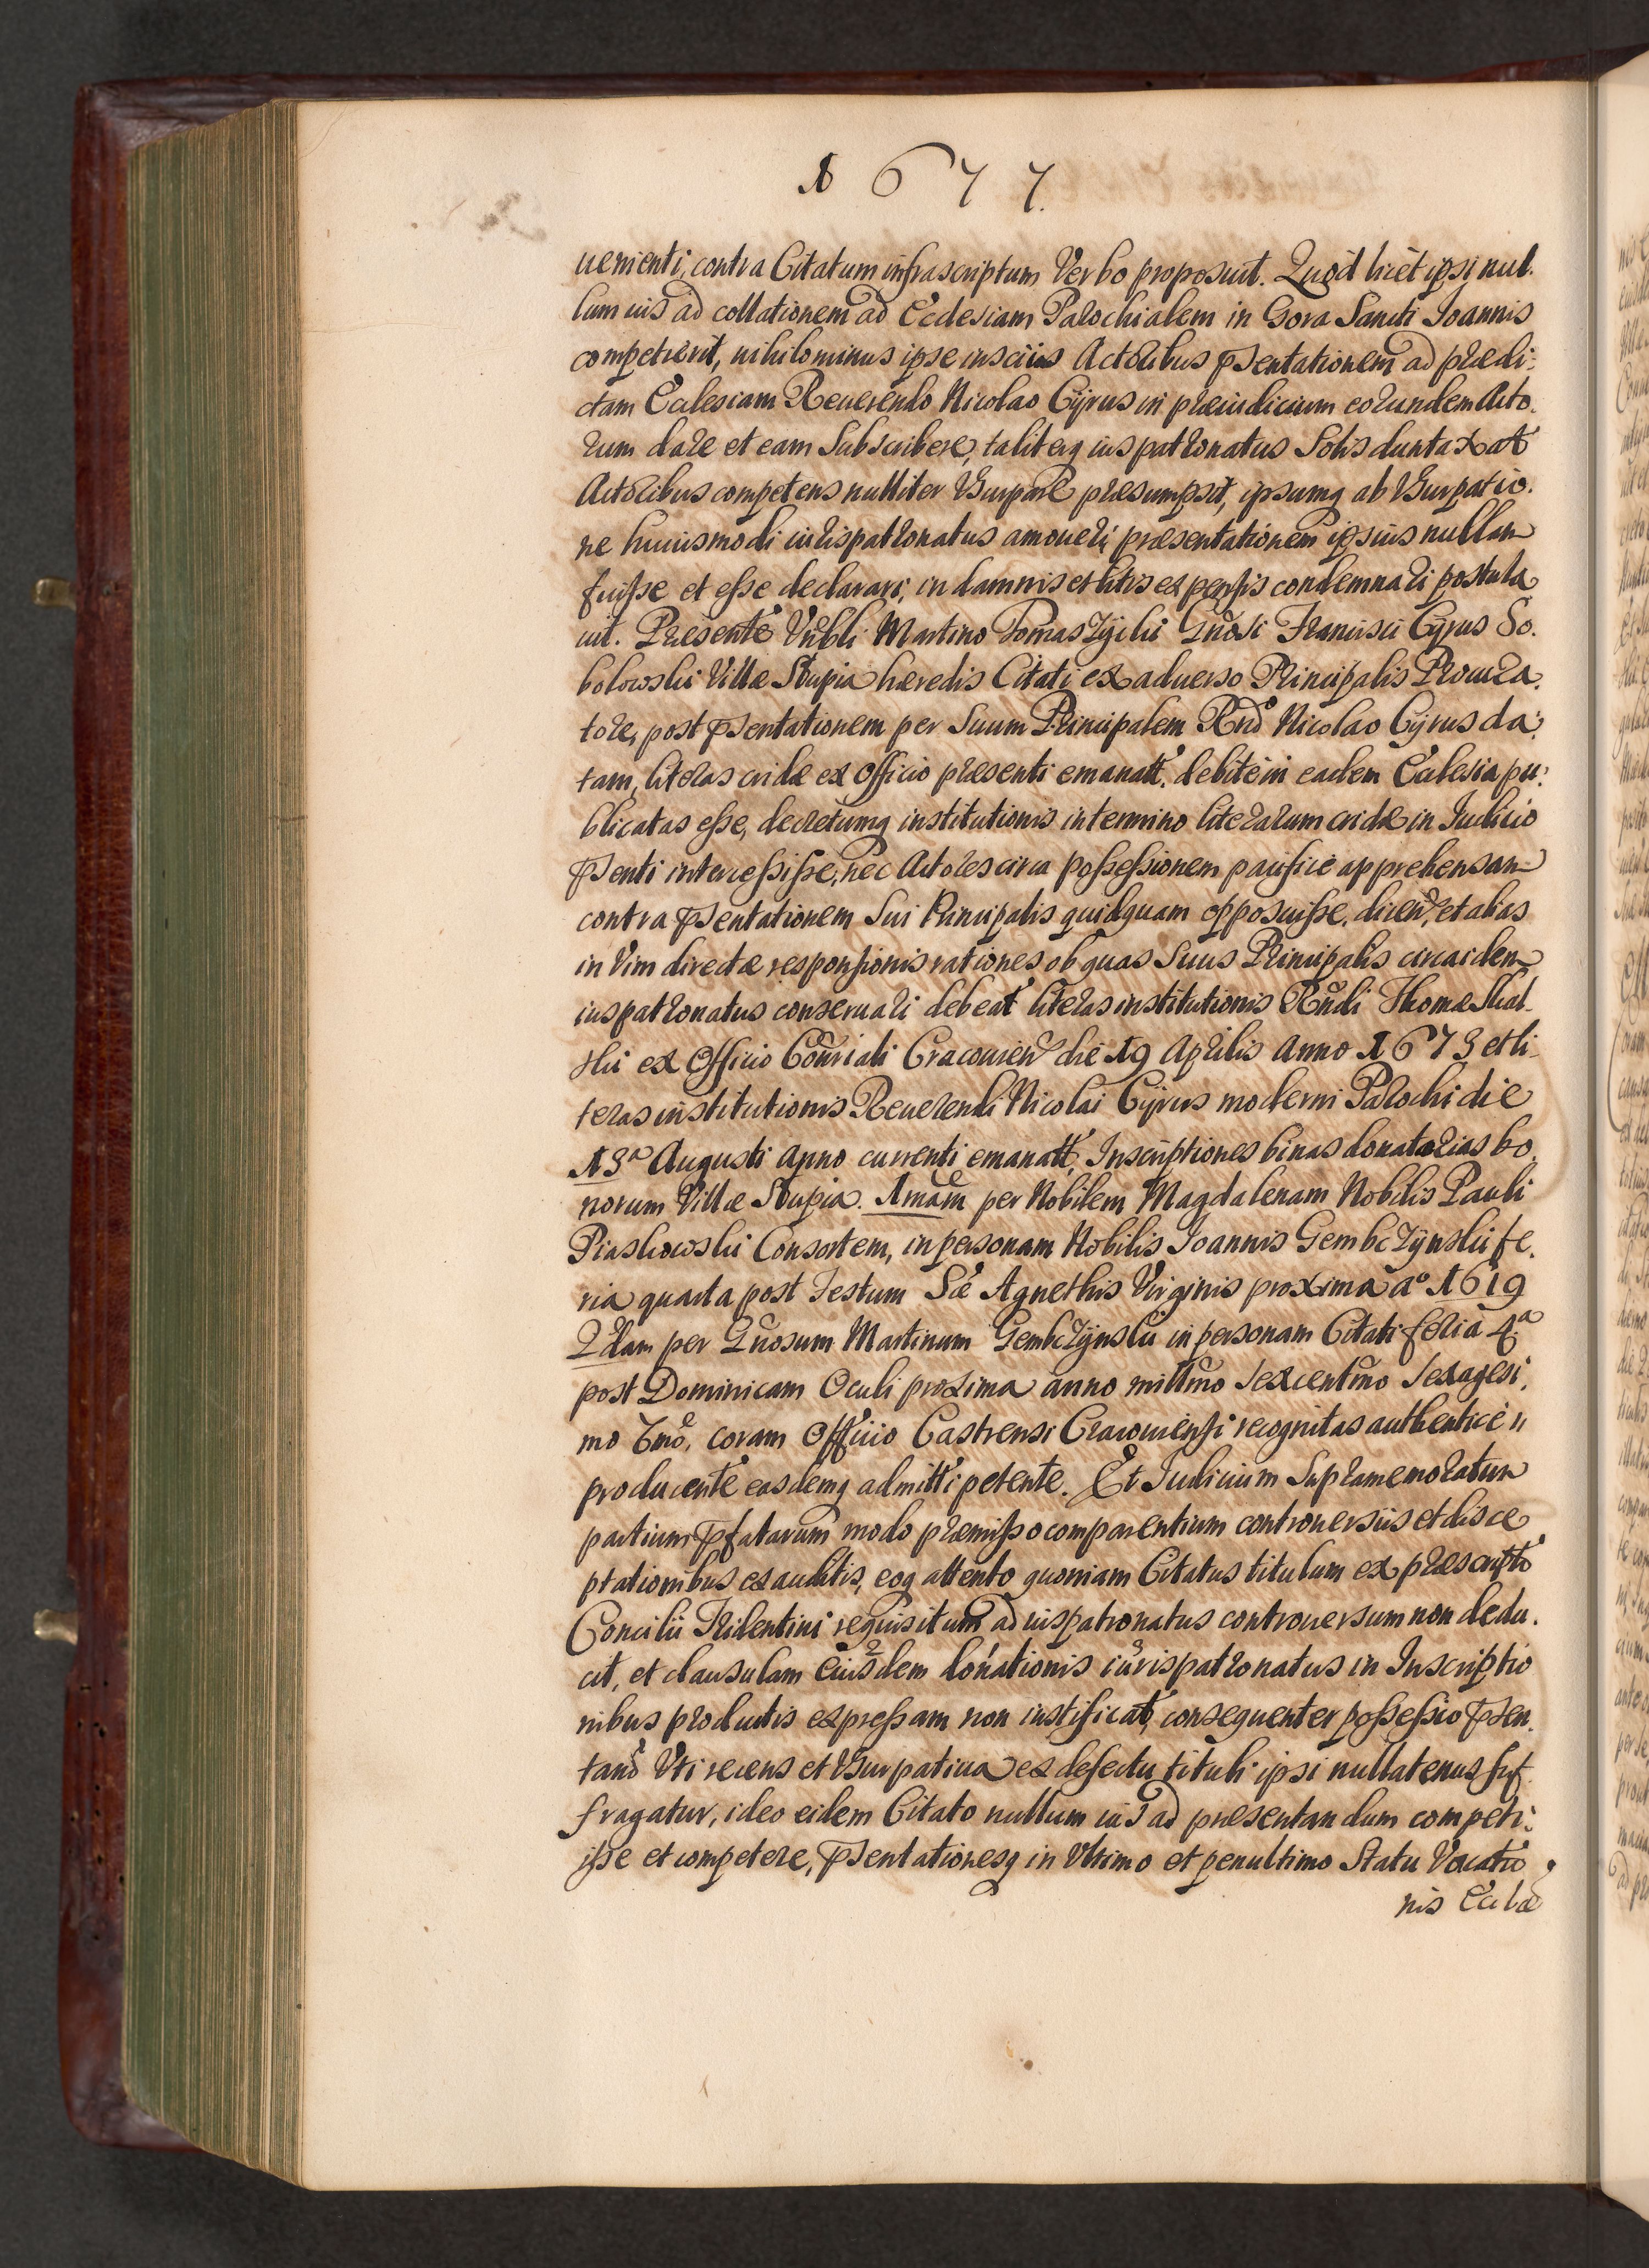 1677.
uenienti, contra Citatum infrascriptum Verbo proposuit. Quod licet ipsi nul-
lum ius ad collationem ad Ecclesiam Parochialem in Gora Sancti Joannis
competierit, nihilominus ipse insciis Actoribus pnsentationem ad prædi-
ctam Ecclesiam Reuerendo Nicolao Cyrus in præiudicium eorundem Acto-
rum dare et eam Subscribere, taliterq ius patronatus Solis duntaxat
Actoribus competens nulliter Usurpare præsumpsit, ipsumq ab Usurpatio-
ne huiusmodi iurispatronatus amoueri, præsentationem ipsius nullam
fuisse et esse declarari, in damnis et litis expensis condemnari postula
uit. Præsente Nobli Martino Tomaszycki Gnosi Francisci Cyrus So-
bolowski Villæ Stupia hæredis Citati ex aduerso Principalis Procura-
tore, post pnsentationem per Suum Principalem Rndo Nicolao Cyrus da-
tam, literas cridæ ex Officio præsenti emanatt. debite in eadem Ecclesia pu-
blicatas esse, decretumq institutionis in termino literarum cridæ in Iudicio
pnsenti intercessisse, nec Actores circa possessionem pacifice apprehensam
contra pnsentationem Sui Principalis quidquam opposuisse, dicen, et alias
in Vim directæ responsionis rationes ob quas Suus Principalis circa idem
iuspatronatus conseruari debeat literas institutionis Rndi Thomæ Skal-
ski ex Officio Conriali Cracouien die 19 Aprilis Anno 1673 et li-
teras institutionis Reuerendi Nicolai Cyrus moderni Parochi die
13a Augusti Anno currenti emanatt, Inscriptiones binas donatorias bo-
norum Villæ Stupia. 1mam per Nobilem Magdalenam Nobilis Pauli
Piaskowski Consortem, in personam Nobilis Joannis Gembczynski fe-
ria quarta post Festum Sæ Agnethis Virginis proxima ao 1619
2dam per Gnosum Martinum Gembczynski in personam Citati feria 4a
post Dominicam Oculi proxima anno millmo sexcentmo sexagesi-
mo 6mo, coram Officio Castrensi Cracouiensi recognitas authentice
producente easdemq admitti petente. Et Iudicium Supramemoratum
partium pfatarum modo præmisso comparentium controuersiis et disce
ptationibus exauditis, eoq attento quoniam Citatus titulum ex præscripto
Concilii Tridentini requisitum ad iuspatronatus controuersum non dedu-
cit, et clausulam eiusdem donationis iurispatronatus in Inscriptio
nibus productis expressam non iustificat, consequenter possessio pnsen-
tandi Vti recens et Usurpatiua ex defectu tituli ipsi nullatenus suf-
fragatur, ideo eidem Citato nullum ius ad præsentandum competi-
isse et competere, pnsentationesq in Vltimo et penultimo Statu Vacatio
nis Eccliæ